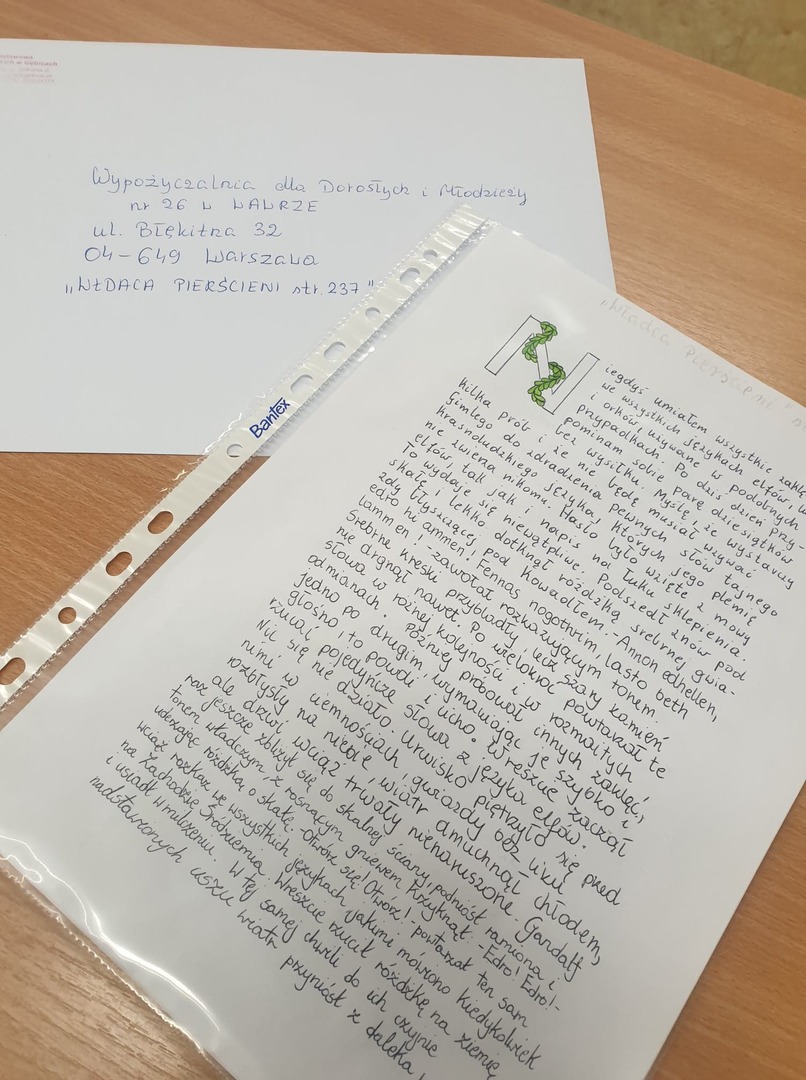 Wypożyczalnia dla Dorosłych i Młodzieży
nr 26 w WAWRZE
ul. Błękitna 32
04-649 Warszawa
„WŁDACA PIERŚCIENI str. 237"
Bantex
„Władca Pierścieni"
Niegdyś umiałem wszystkie
we wszystkich językach elfów,
i orków, używane w podobnych
przypadkach. Po dziś dzień przy-
pominam sobie parę dziesiątków
bez wysiłku. Myślę, że wystarczy
kilka prób i że nie będę musiał wzywać
Gimlego do zdradzenia pewnych słów tajnego
krasnoludzkiego języka, których jego plemię
nie zwierza nikomu. Hasło było wzięte z mowy
elfów, tak jak i napis na łuku sklepienia.
To wydaje się niewątpliwe. Podszedł znów pod
skałę i lekko dotknął różdżką srebrnej gwia-
zdy błyszczącej pod kowadłem. - Annon edhellen,
edro hi ammen! Fennas nogothrim, lasto beth
lammen! - zawołał rozkazującym tonem.
Srebrne kreski przybladły, lecz szary kamień
nie drgnął nawet. Po wielokroć powtarzał te
słowa w różnej kolejności i w rozmaitych
odmianach. Później próbował innych zaklęć,
jedno po drugim, wymawiając je szybko i
głośno, to powoli i cicho. Wreszcie zaczął
rzucać pojedyńcze słowa z języka elfów.
Nic się nie działo. Urwisko piętrzyło się przed
nimi w ciemnościach, gwiazdy bez liku
rozbłysły na niebie, wiatr dmuchnął chłodem,
ale drzwi wciąż trwały nienaruszone. Gandalf
raz jeszcze zbliżył się do skalnej ściany, podniósł ramiona i
tonem władczym, z rosnącym gniewem krzyknął: - Edro! Edro! -
uderzając różdżką o skałę. - Otwórz się! Otwórz! - powtarzał ten sam
wciąż rozkaz we wszystkich językach jakimi mówiono kiedykolwiek
na Zachodzie Śródziemia. Wreszcie rzucił różdżkę na ziemię
i usiadł w milczeniu. W tej samej chwili do ich czujnie
nadstawionych uszu wiatr przyniósł z daleka